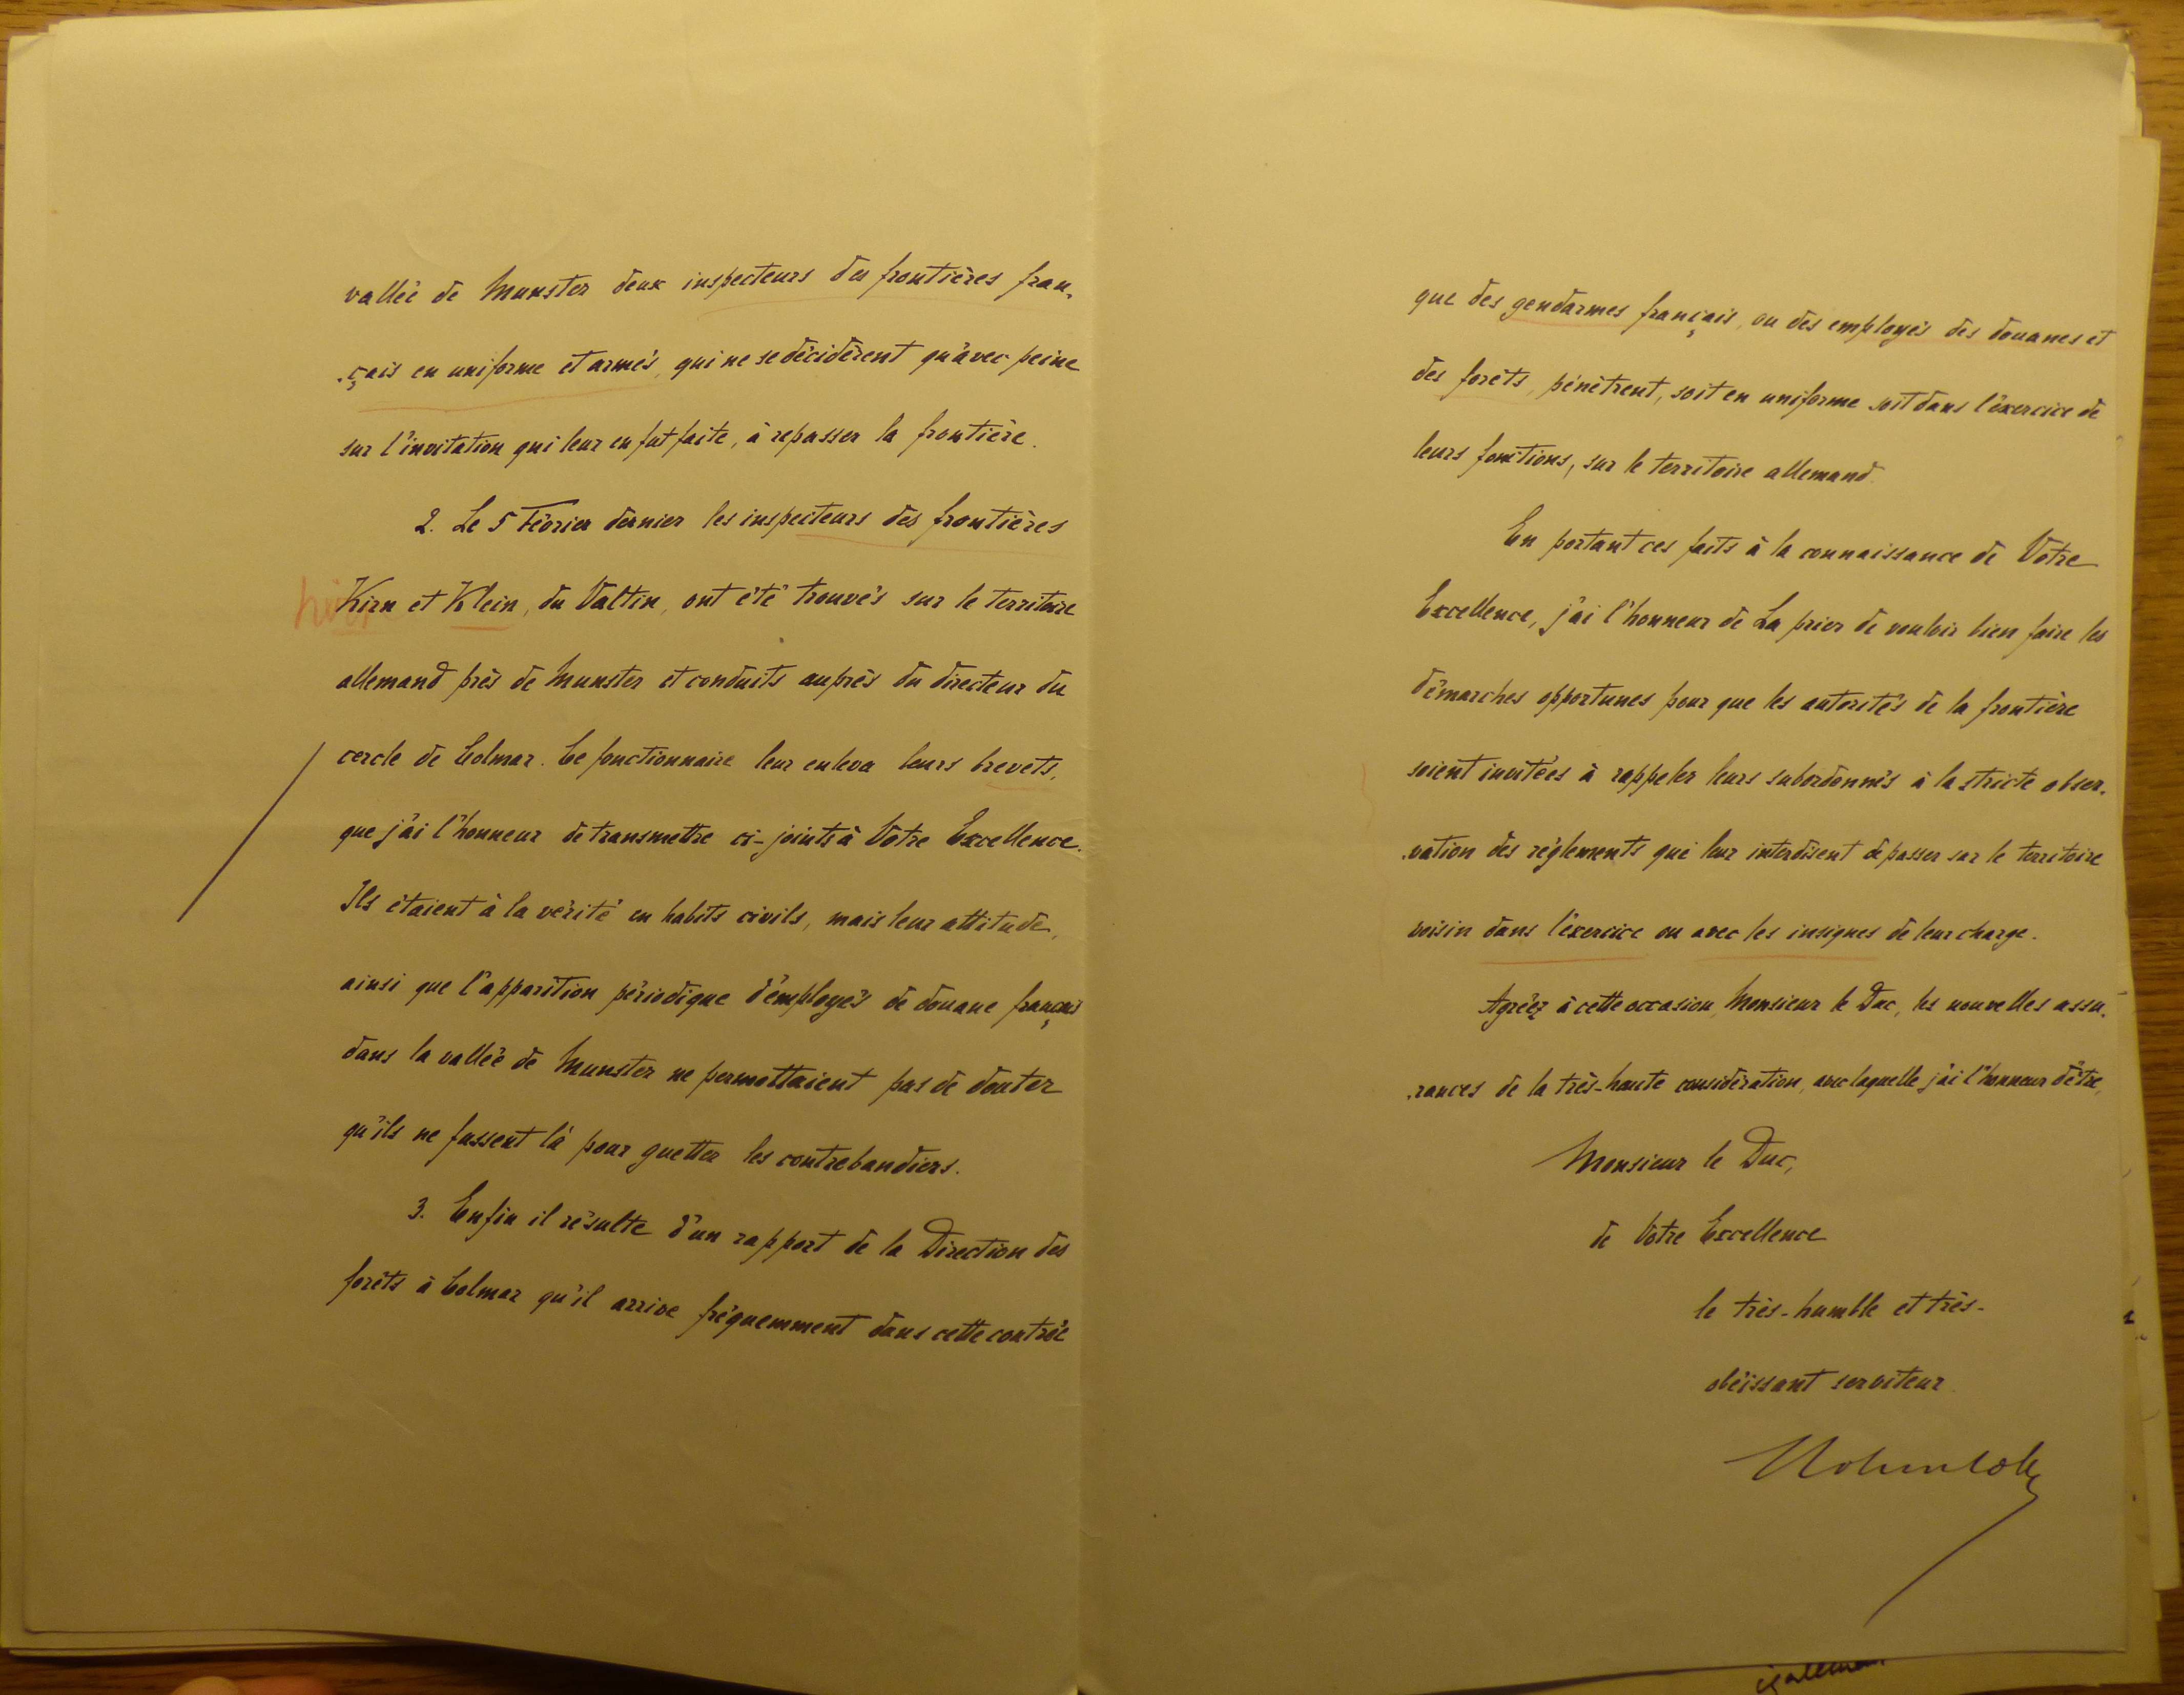 vallée de Munster deux inspecteurs des frontières fran-
-çais en uniforme et armés, qui ne se décidèrent qu'avec peine
sur l'invitation qui leur en fut faite, à repasser la frontière.
2. Le 5 Février dernier les inspecteurs des frontières
Kirn et Klein, du Valtin, ont été trouvés sur le territoire
allemand près de Munster et conduits auprès du directeur du
cercle de Colmar. Ce fonctionnaire leur enleva leurs brevets,
que j'ai l'honneur de transmettre ci-joints à Votre Excellence.
Ils étaient à la vérité en habits civils, mais leur attitude,
ainsi que l'apparition périodique d'employés de douane français
dans la vallée de Munster ne permettaient pas de douter
qu'ils ne fussent là pour guetter les contrebandiers.
3. Enfin il résulte d'un rapport de la Direction des
forêts à Colmar qu'il arrive fréquemment dans cette contrée
que des gendarmes français, ou des employés des douanes et
des forêts, pénètrent, soit en uniforme soit dans l'exercice de
leurs fonctions, sur le territoire allemand.
En portant ces faits à la connaissance de Votre
Excellence, j'ai l'honneur de La prier de vouloir bien faire les
démarches opportunes pour que les autorités de la frontière
soient invitées à rappeler leurs subordonnés à la stricte obser-
-vation des règlements qui leur interdisent de passer sur le territoire
voisin dans l'exercice ou avec les insignes de leur charge.
Agréez à cette occasion, Monsieur le Duc, les nouvelles assu-
-rances de la très-haute considération, avec laquelle j'ai l'honneur d'être,
Monsieur le Duc,
de Votre Excellence
le très-humble et très-
obéissant serviteur
Hohenlohe